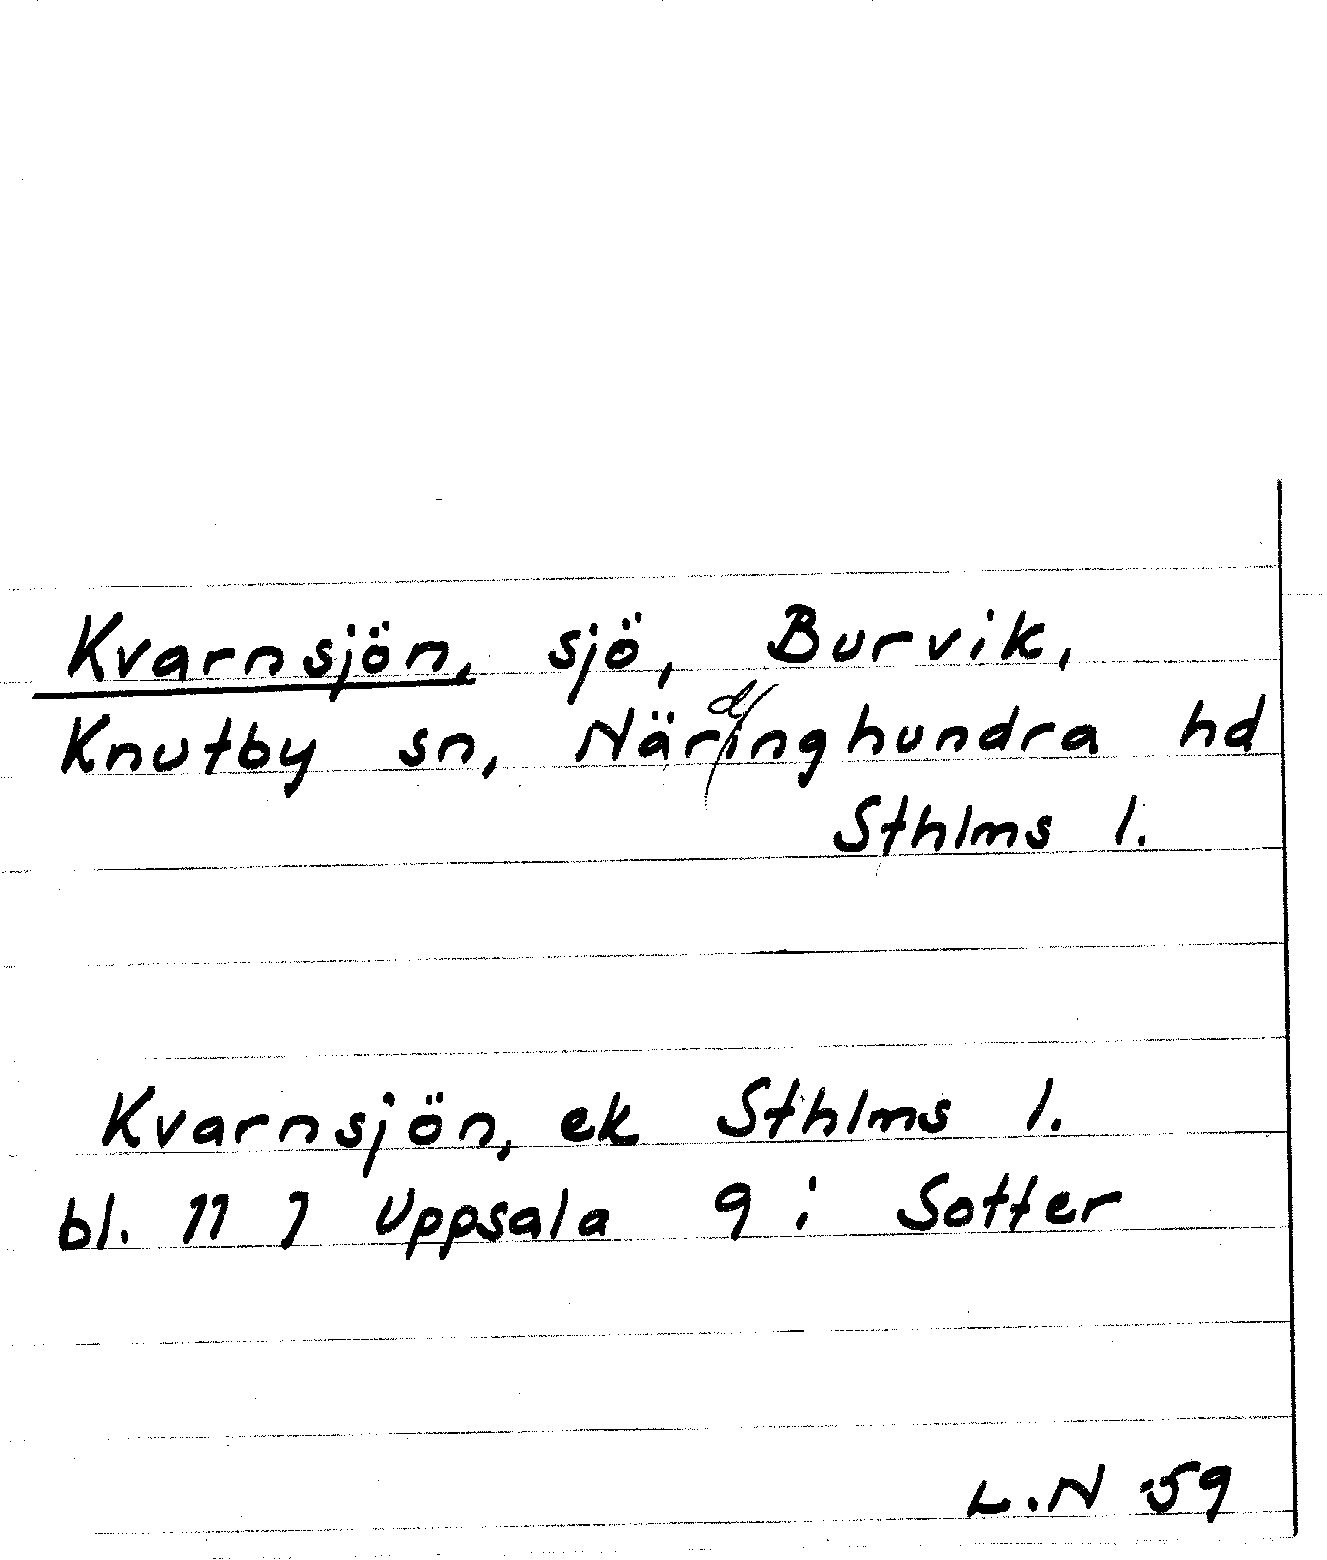 Kvarnsjön, sjö, Burvik,
Knutby sn, Närdinghundra hd
Sthlms l.
Kvarnsjön, ek Sthlms l.
bl. 11 7 Uppsala 9 i Sotter
L.N -59